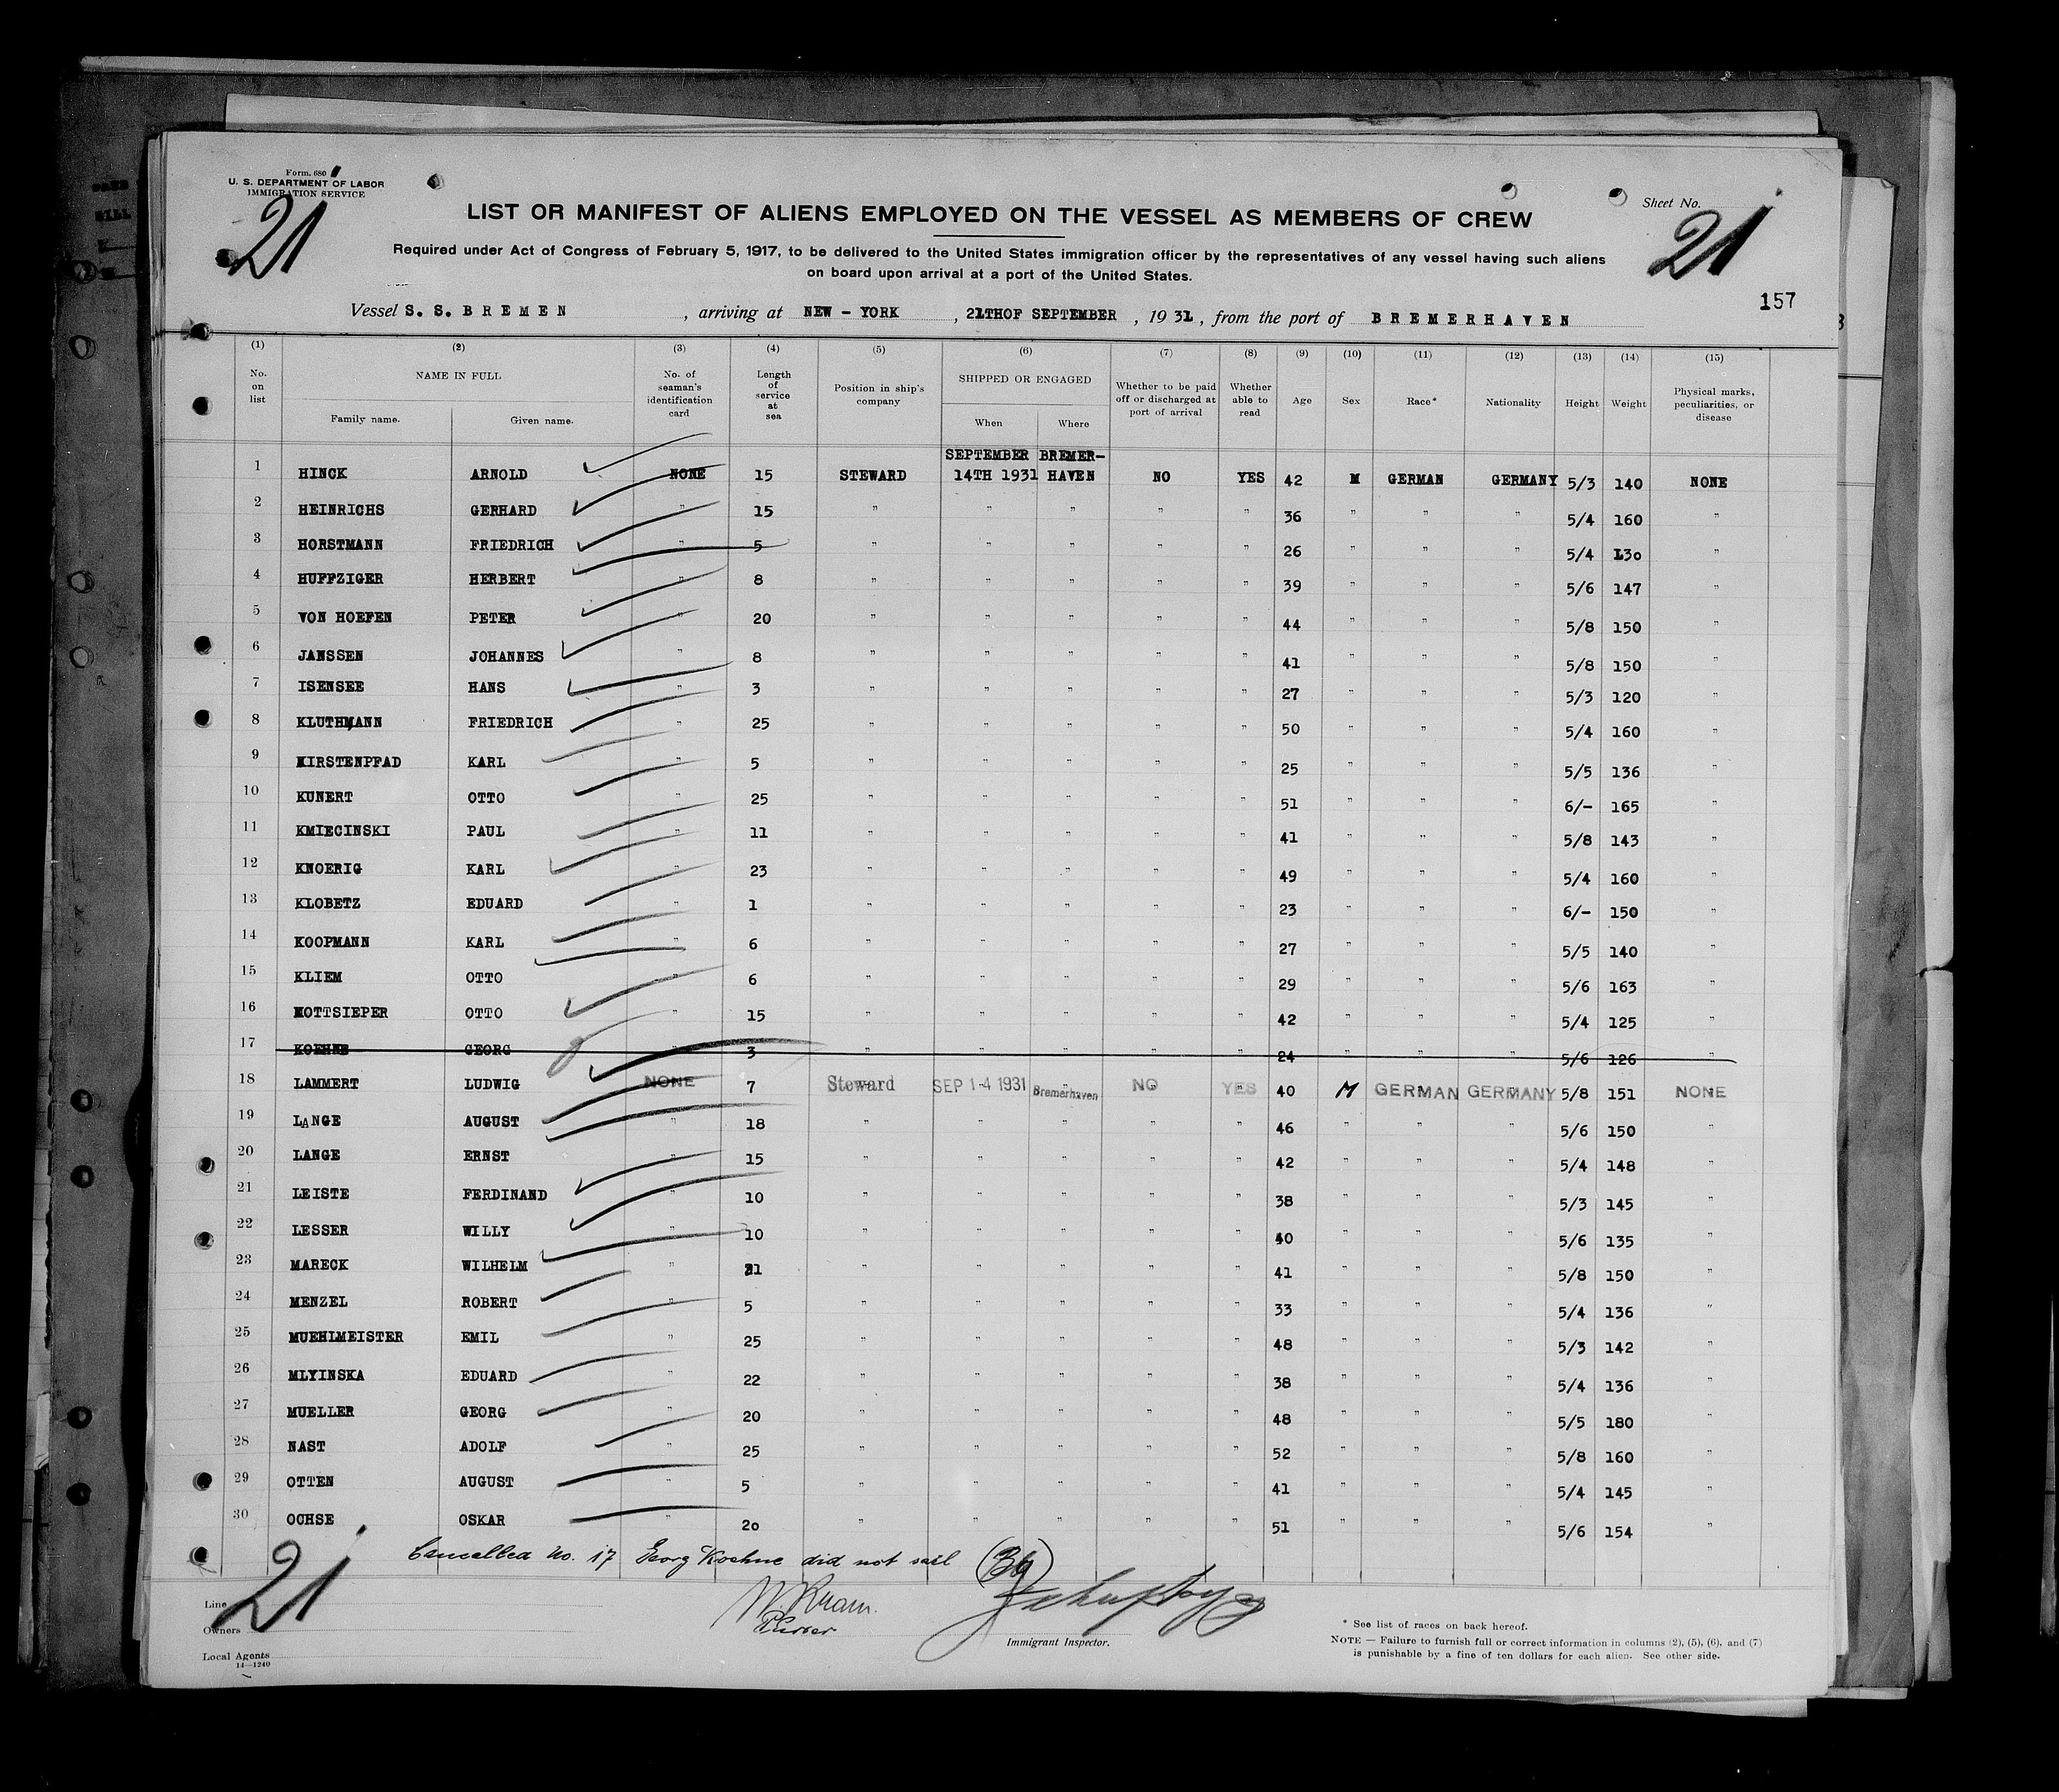 Form. 680
U. S. DEPARTMENT OF LABOR
IMMIGRATION SERVICE
21
Sheet No.
21
LIST OR MANIFEST OF ALIENS EMPLOYED ON THE VESSEL AS MEMBERS OF CREW
Required under Act of Congress of February 5, 1917, to be delivered to the United States immigration officer by the representatives of any vessel having such aliens
on board upon arrival at a port of the United States.
157
Vessel S. S. BREMEN, arriving at NEW - YORK, 21THOF SEPTEMBER, 19 31, from the port of BREMERHAVEN
(1) (2) (3) (4) (5) (6) (7) (8) (9) (10) (11) (12) (13) (14) (15)
No. on list NAME IN FULL Family name. Given name. No. of seaman's identification card Length of service at sea Position in ship's company SHIPPED OR ENGAGED When Where Whether to be paid off or discharged at port of arrival Whether able to read Age Sex Race* Nationality Height Weight Physical marks, peculiarities, or disease
1 HINCK ARNOLD NONE 15 STEWARD SEPTEMBER 14TH 1931 BREMER-HAVEN NO YES 42 M GERMAN GERMANY 5/3 140 NONE
2 HEINRICHS GERHARD " 15 " " " " " 36 " " " 5/4 160 "
3 HORSTMANN FRIEDRICH " 5 " " " " " 26 " " " 5/4 130 "
4 HUFFZIGER HERBERT " 8 " " " " " 39 " " " 5/6 147 "
5 VON HOEFEN PETER " 20 " " " " " 44 " " " 5/8 150 "
6 JANSSEN JOHANNES " 8 " " " " " 41 " " " 5/8 150 "
7 ISENSEE HANS " 3 " " " " " 27 " " " 5/3 120 "
8 KLUTHMANN FRIEDRICH " 25 " " " " " 50 " " " 5/4 160 "
9 KIRSTENPFAD KARL " 5 " " " " " 25 " " " 5/5 136 "
10 KUNERT OTTO " 25 " " " " " 51 " " " 6/- 165 "
11 KMIECINSKI PAUL " 11 " " " " " 41 " " " 5/8 143 "
12 KNOERIG KARL " 23 " " " " " 49 " " " 5/4 160 "
13 KLOBETZ EDUARD " 1 " " " " " 23 " " " 6/- 150 "
14 KOOPMANN KARL " 6 " " " " " 27 " " " 5/5 140 "
15 KLIEM OTTO " 6 " " " " " 29 " " " 5/6 163 "
16 KOTTSIEPER OTTO " 15 " " " " " 42 " " " 5/4 125 "
17 KOEHNE GEORG " 3 " " " " " 24 " " " 5/6 126 "
18 LAMMERT LUDWIG NONE 7 Steward SEP 14 1931 Bremerhaven NO YES 40 M GERMAN GERMANY 5/8 151 NONE
19 LANGE AUGUST " 18 " " " " " 46 " " " 5/6 150 "
20 LANGE ERNST " 15 " " " " " 42 " " " 5/4 148 "
21 LEISTE FERDINAND " 10 " " " " " 38 " " " 5/3 145 "
22 LESSER WILLY " 10 " " " " " 40 " " " 5/6 135 "
23 MARECK WILHELM " 21 " " " " " 41 " " " 5/8 150 "
24 MENZEL ROBERT " 5 " " " " " 33 " " " 5/4 136 "
25 MUEHLMEISTER EMIL " 25 " " " " " 48 " " " 5/3 142 "
26 MLYINSKA EDUARD " 22 " " " " " 38 " " " 5/4 136 "
27 MUELLER GEORG " 20 " " " " " 48 " " " 5/5 180 "
28 NAST ADOLF " 25 " " " " " 52 " " " 5/8 160 "
29 OTTEN AUGUST " 5 " " " " " 41 " " " 5/4 145 "
30 OCHSE OSKAR " 20 " " " " " 51 " " " 5/6 154 "
Cancelled No. 17 Georg Koehne did not sail
21
Line
Owners
Local Agents
14-1240
Purser
Immigrant Inspector.
* See list of races on back hereof.
NOTE — Failure to furnish full or correct information in columns (2), (5), (6), and (7)
is punishable by a fine of ten dollars for each alien. See other side.